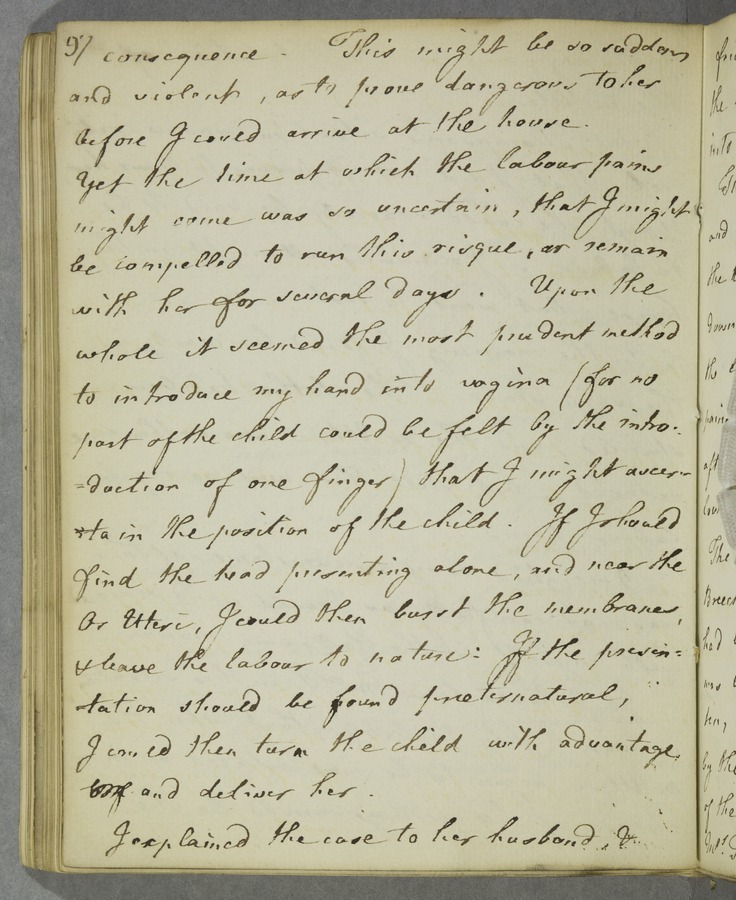 97
consequence. This might be so sudden
and violent, as to prove dangerous to her
before I could arrive at the house.
Yet the time at which the labour pains
might come was so uncertain, that I might
be compelled to run this risque, or remain
with her for several days. Upon the
whole it seemed the most prudent method
to introduce my hand into vagina (for no
part of the child could be felt by the intro-
=duction of one finger) that I might ascer-
=tain the position of the child. If I should
find the head presenting alone, and near the
Os Uteri, I could then burst the membranes,
& leave the labour to nature: If the presen=
-tation should be found preternatural,
I could then turn the child with advantage,
and deliver her.
I explained the case to her husband, &